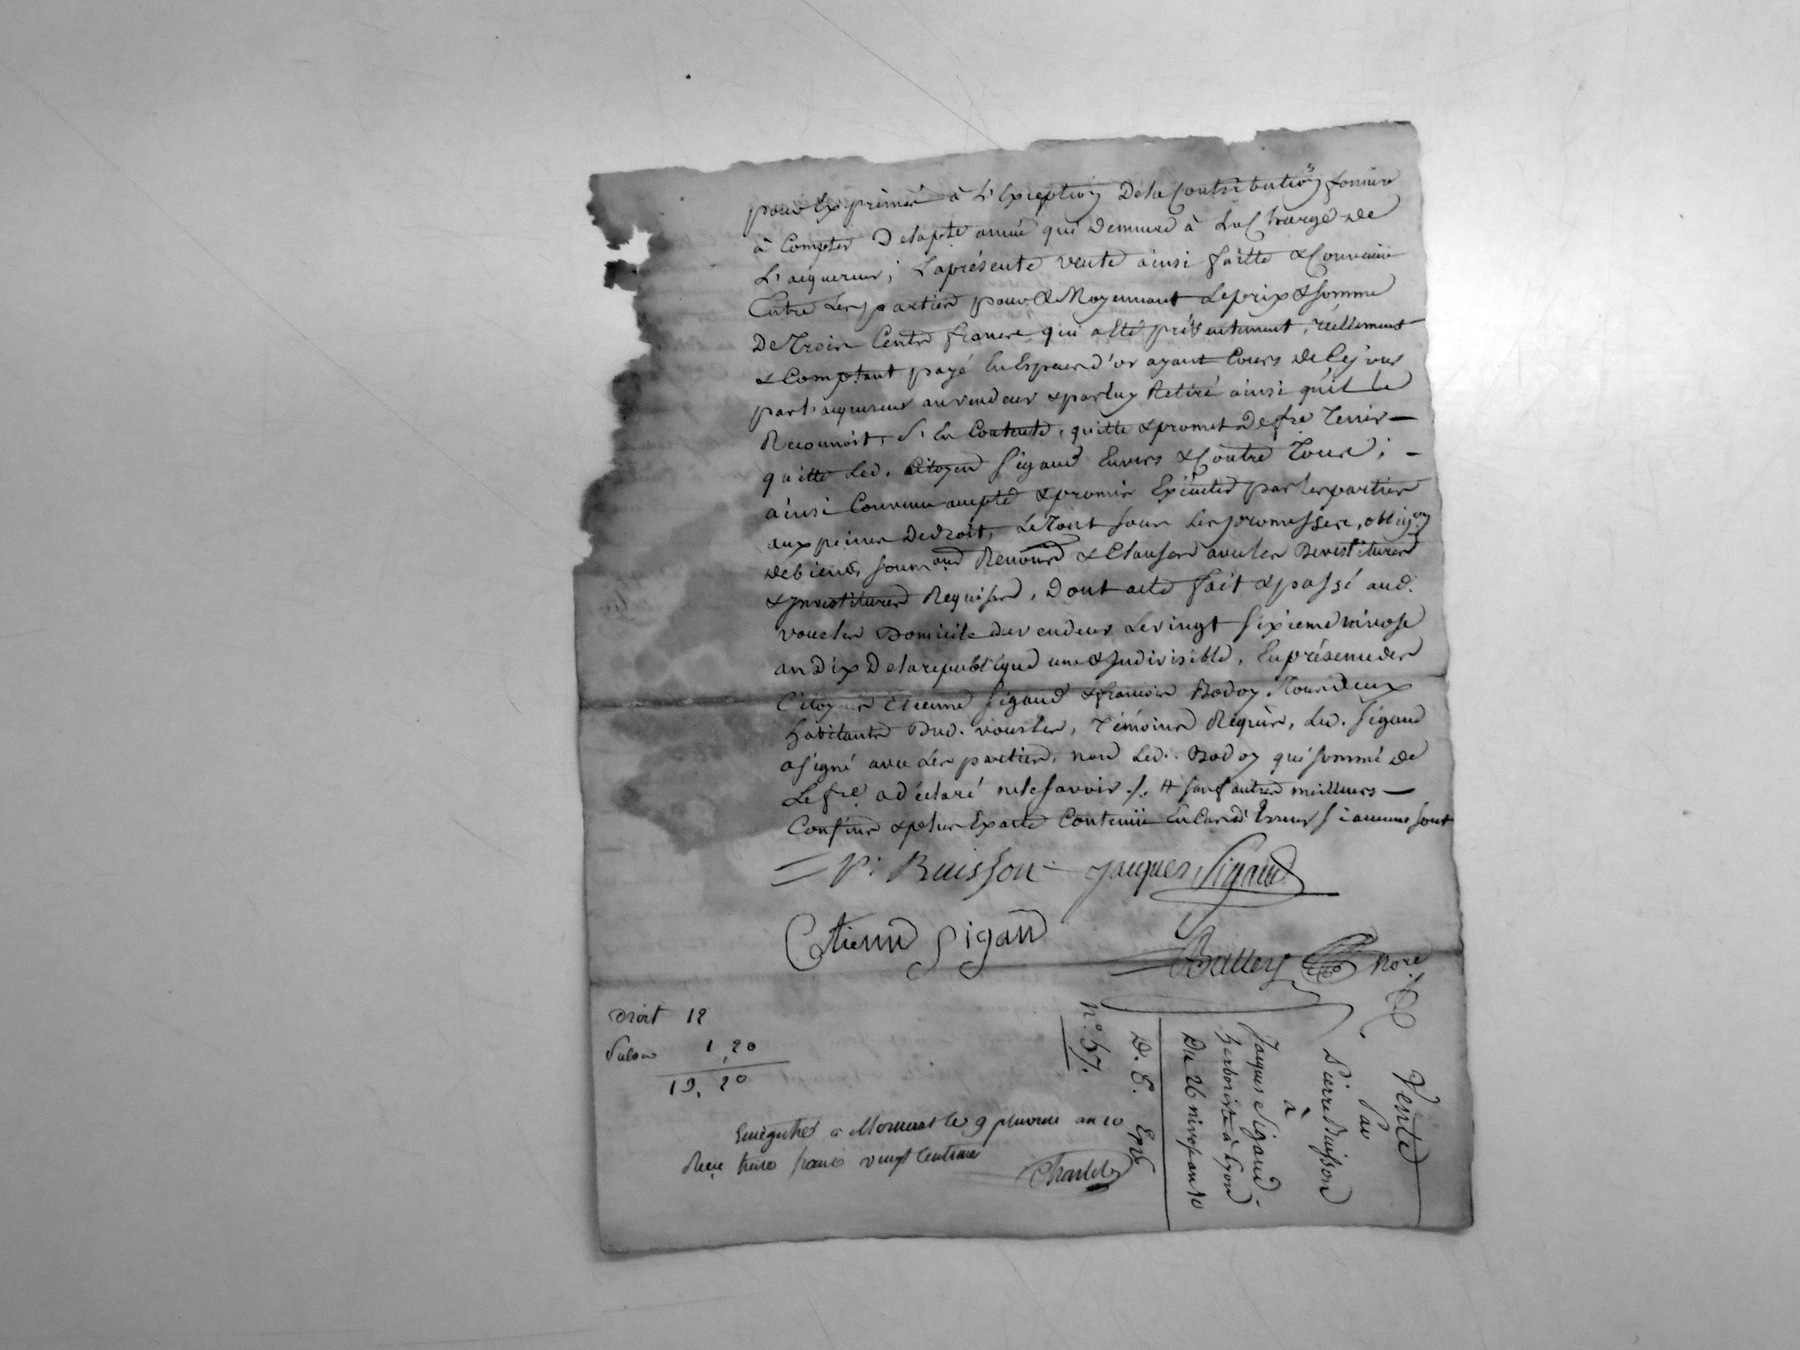 pour Exprimé à L'Exception Dela Contribution fonciere
à Compter Delapte année qui Demeure à La Charge de
L'aquereur; Laprésente vente ainsi faitte & Convenüe
Entre Les parties pour & Moyennant Leprix & somme
De Trois Cents francs qui a Eté présentement, réellement
& Comptant payé En Espèces d'or ayant Cours de Cejour
par L'aquereur au vendeur & par luy Retiré ainsi qu'il Le
Reconnoit, S'En Contente, quitte & promet De fre Tenir —
quitte Led. Citoyen Sigaud Envers & Contre Tous; —
ainsi Convenu accepté & promis Exécuter par les parties
aux peines De droit, Le Tout sous Les promesses, obligons
de biens, soumons Renonds & Clauses avec les Devestitures
& Investitures Requises, Dont acte fait & passé aud.
vourles Domicile du vendeur Le vingt sixieme nivose
an Dix De la republique une & Indivisible, En présence des
Citoyens Etienne Sigaud & francois Bodoy Tous deux
habitants Dud. vourles, Témoins Requis, Led. Sigaud
a signé avec Les parties, non Led. Bodoy qui sommé de
Le fre a déclaré ne le savoir ./. # sauf autres meilleurs —
Confins & plus Exacte Contenüe En Cas d'Erreur si aucuns sont
P. Buisson Jacques Sigaud
Etienne Sigaud
Balley Nore
Droit 12
1,20
13,20
Enregistré à Mornant le 9 pluviose an 10
Reçu treize francs vingt Centimes
n.° 57.
D. E. Exp
Vente
Par
Pierre Buisson
à
Jaques Sigaud
herboriste à Lyon
Du 26 nivose an 10